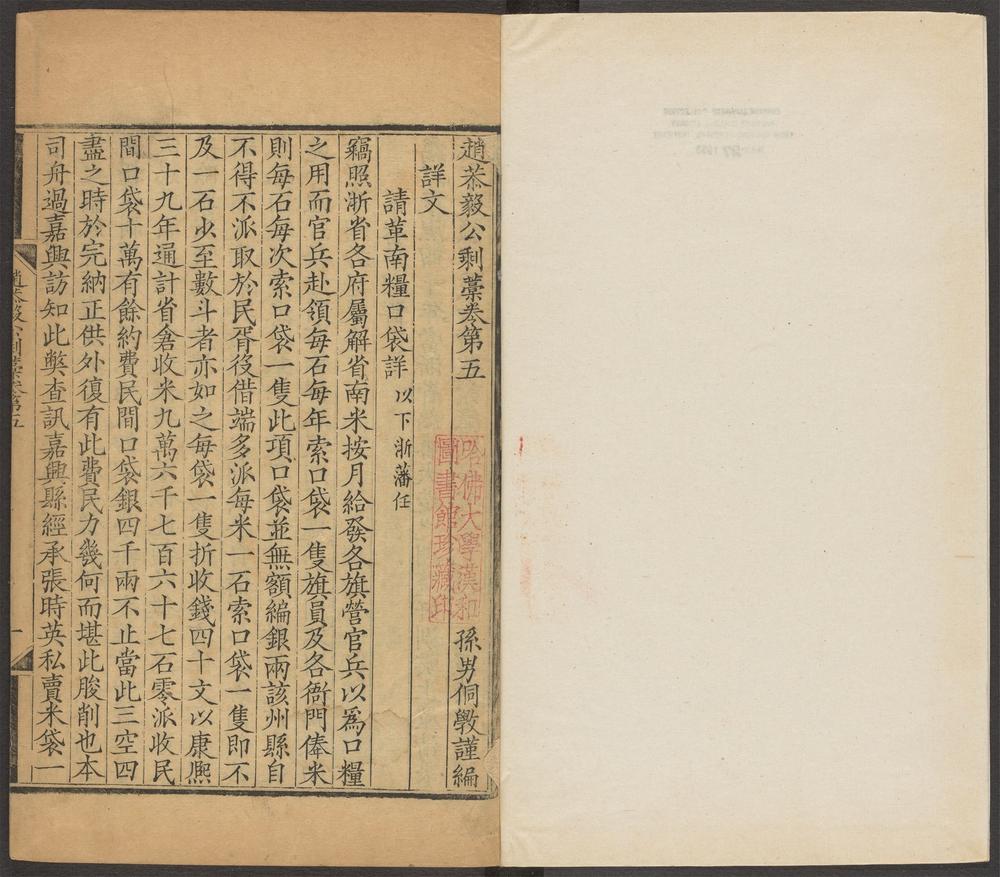 趙恭毅公剩藁卷第五
孫男侗斅謹編
詳文
請革南糧口袋詳 以下浙藩任
竊照浙省各府屬解省南米按月給發各旗營官兵以為口糧
之用而官兵赴領每石每年索口袋一隻旗員及各衙門俸米
則每石每次索口袋一隻此項口袋並無額編銀兩該州縣自
不得不派取於民胥役借端多派每米一石索口袋一隻即不
及一石少至數斗者亦如之每袋一隻折收錢四十文以康熙
三十九年通計省倉收米九萬六千七百六十七石零派收民
間口袋十萬有餘約費民間口袋銀四千兩不止當此三空四
盡之時於完納正供外復有此費民力幾何而堪此朘削也本
司舟過嘉興訪知此弊查訊嘉興縣經承張時英私賣米袋一
趙恭毅公剩藁卷第五
一
哈佛大學漢和
圖書館珍藏印